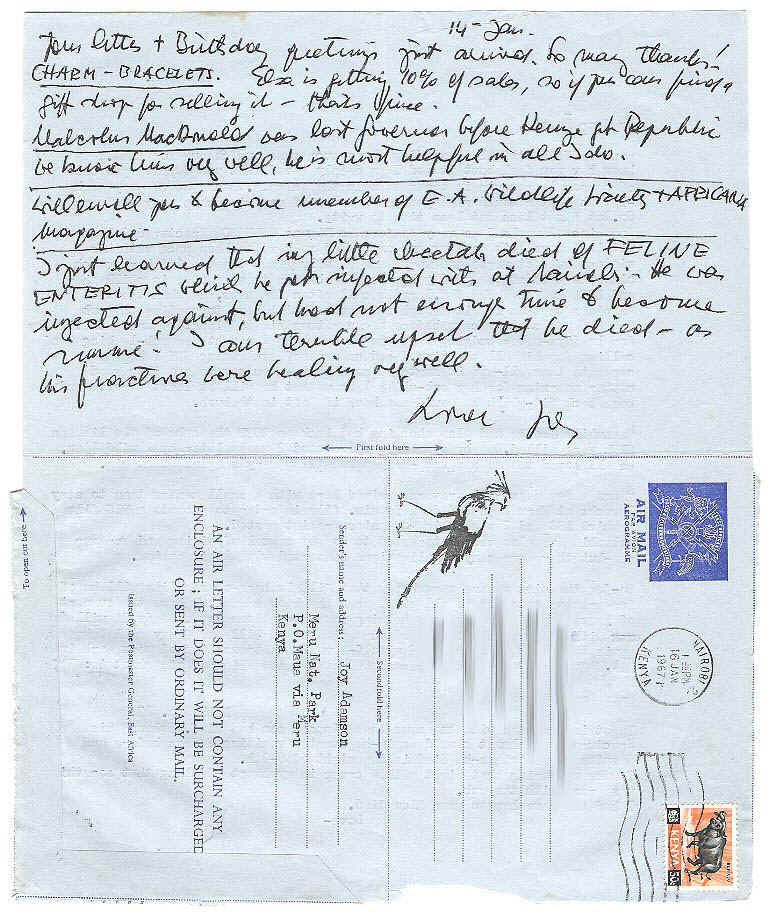 14 - Jan.
Your letter + Birthday greetings just arrived. So many thanks!
CHARM - BRACELETS. Elsa is getting 10% of sales, so if you can find a
gift shop for selling it - thats fine.
Malcolm MacDonald was last governor before Kenya got Republic
we know him very well, he is most helpful in all I do.
will enroll you to become member of E.A. Wildlife Society + AFRICANA
Magazine -
I just learned that my little cheetah died of FELINE
ENTERITIS which he got infected with at Nairobi - He was
injected against, but had not enough time to become
immune! I am terrible upset that he died - as
his fractures were healing very well.
Love Joy
First fold here
To open cut here
AN AIR LETTER SHOULD NOT CONTAIN ANY
ENCLOSURE ; IF IT DOES IT WILL BE SURCHARGED
OR SENT BY ORDINARY MAIL.
Issued by the Postmaster General, East Africa
Sender's name and address: Joy Adamson
Meru Nat. Park
P.O.Maua via Meru
Kenya
Second fold here
AIR MAIL
PAR AVION
AEROGRAMME
NAIROBI
PM
16 JAN
1967
KENYA
KENYA
50c